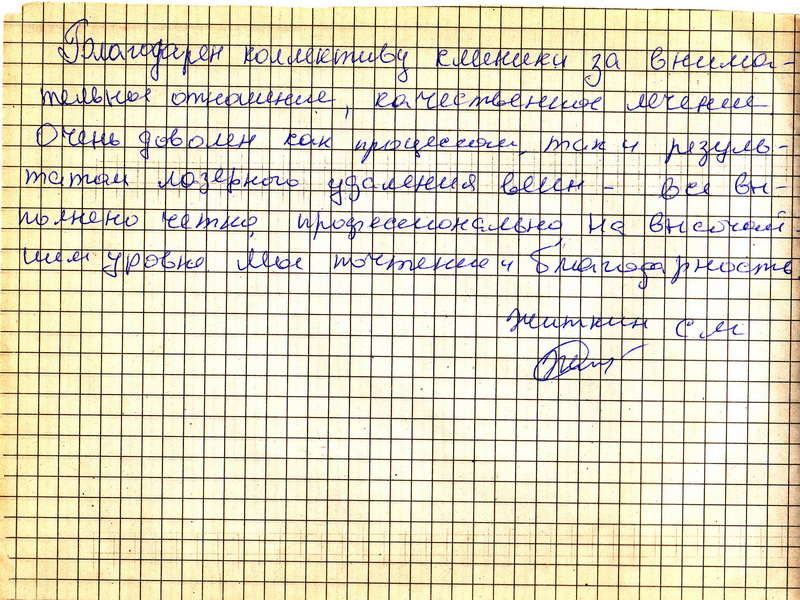 Благодарен коллективу клиники за внима-
тельное отношение, качественное лечение.
Очень доволен как процессом, так и резуль-
татом лазерного удаления вен - все вы-
полнено четко, профессионально на высочай-
шем уровне. Мое почтение и благодарность
Житкин С.М